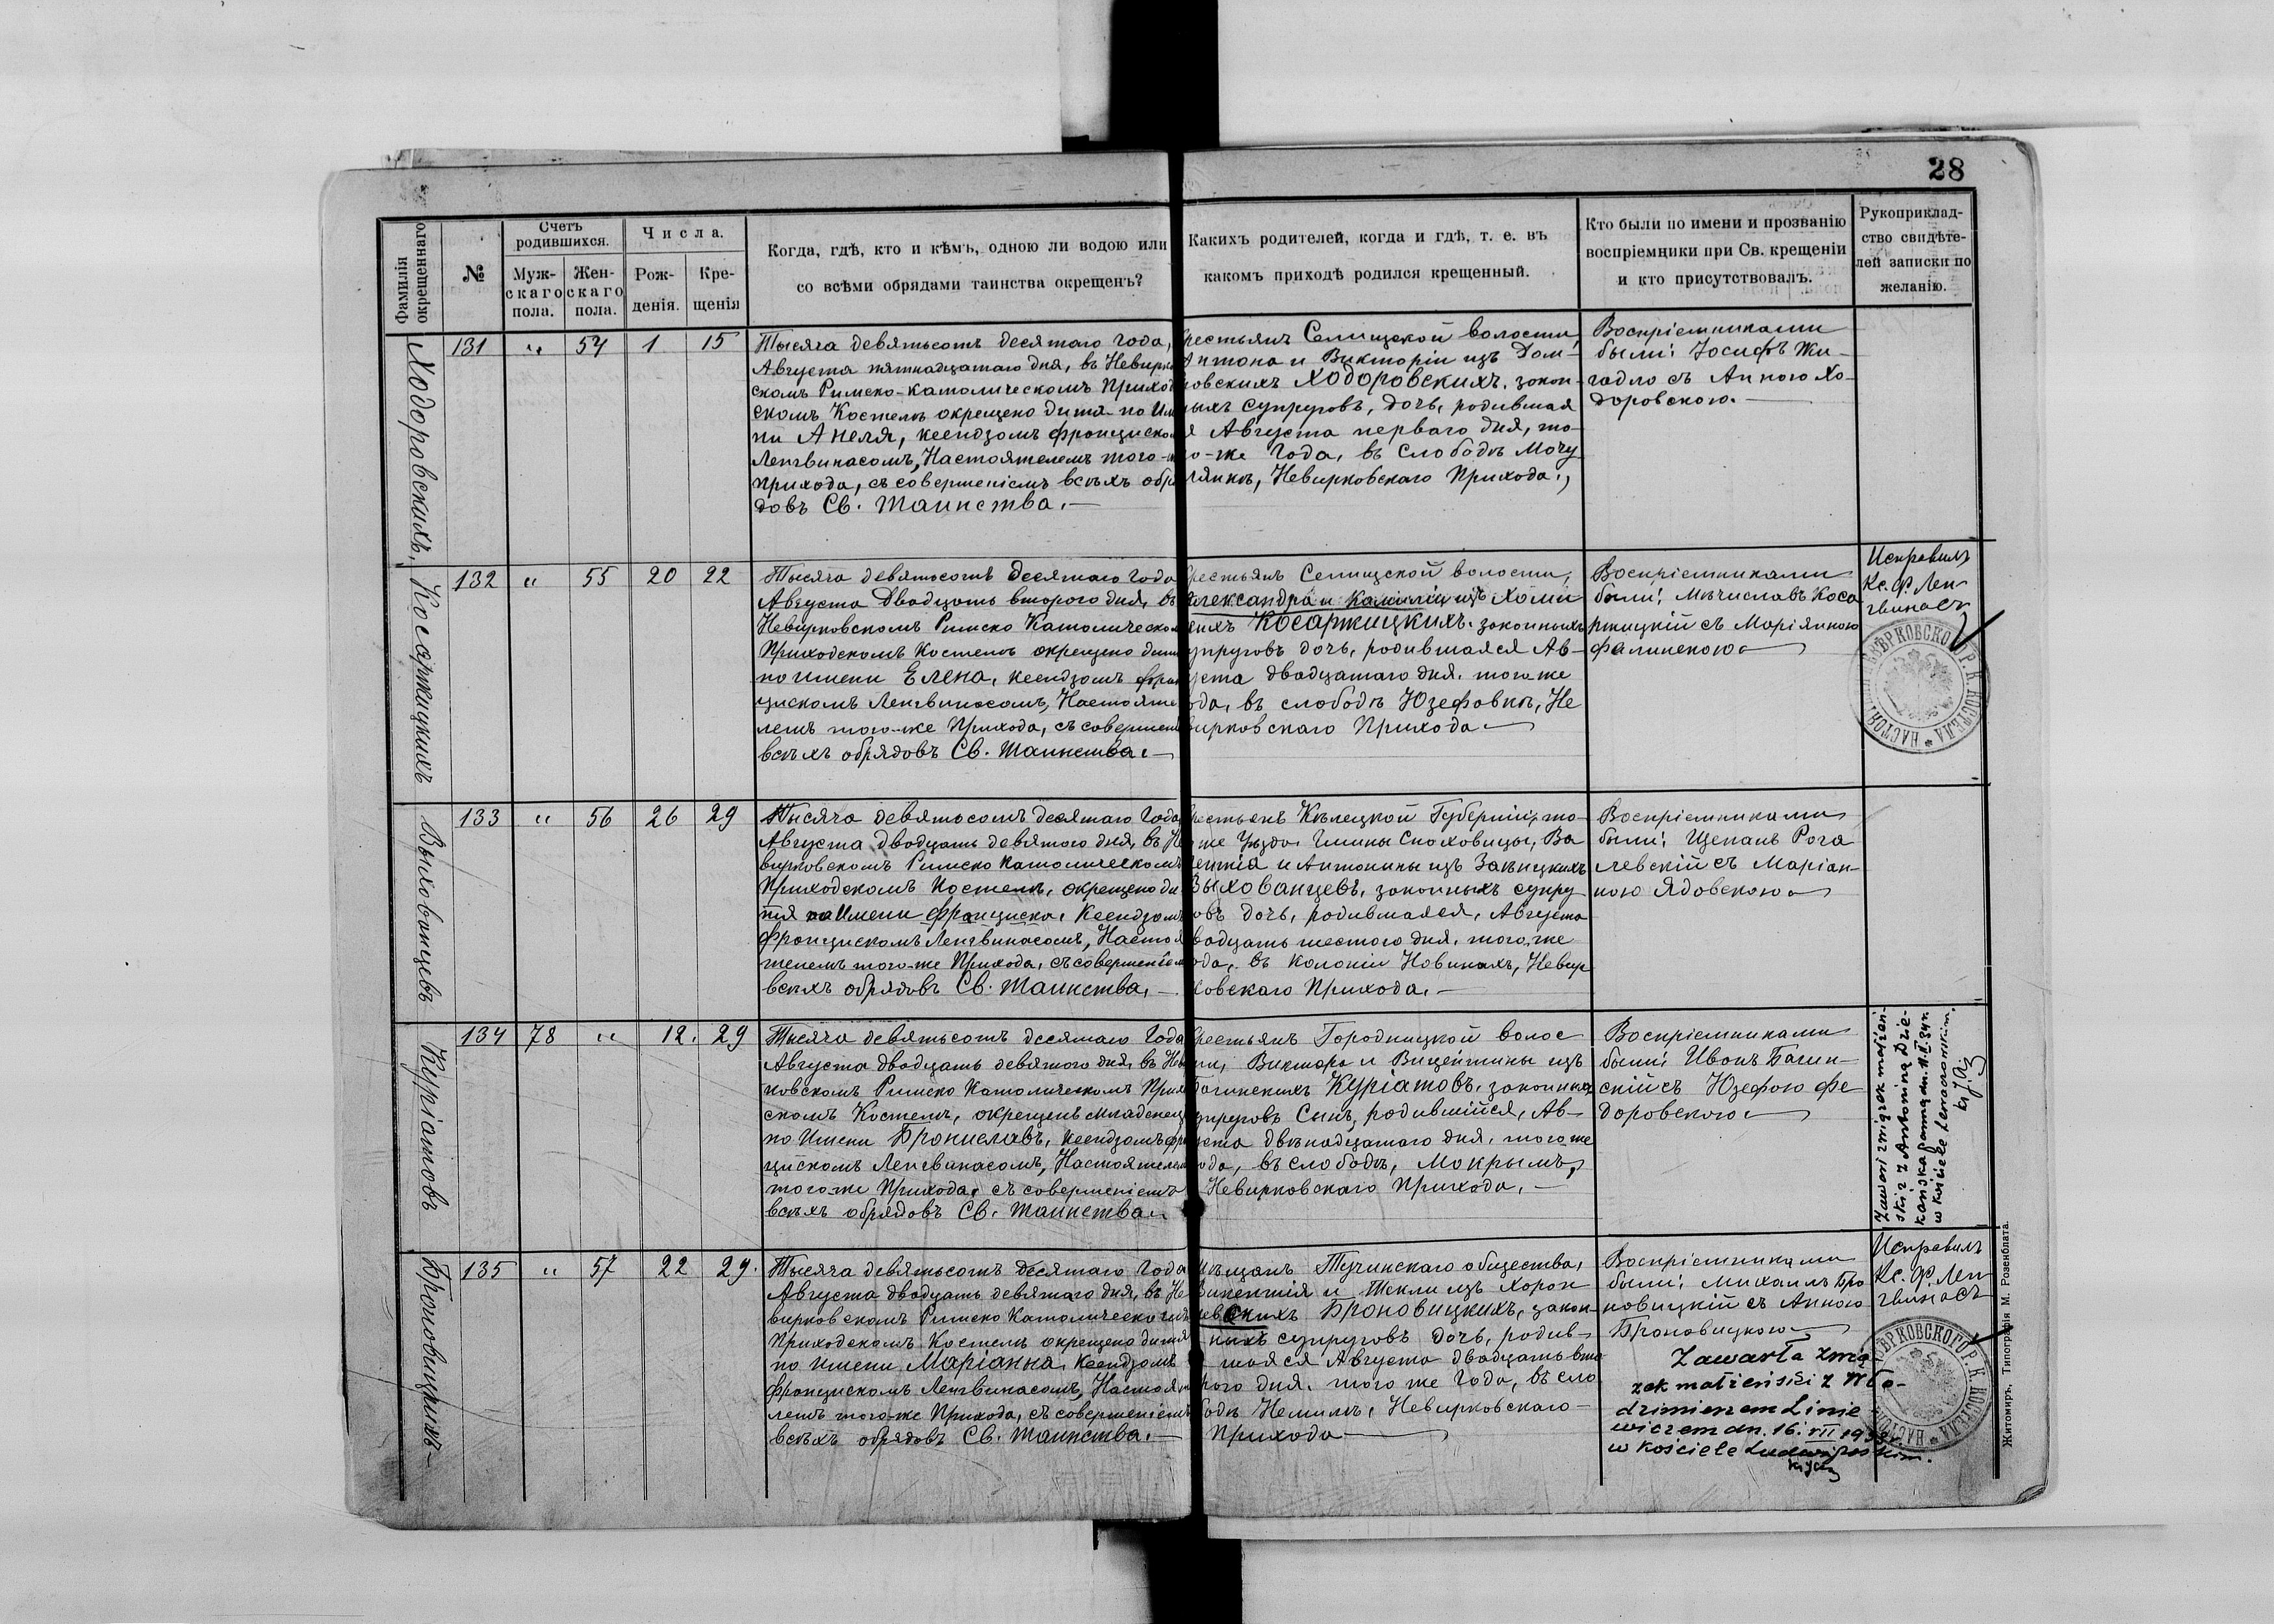 28
Фамилія окрещеннаго
№
Счетъ родившихся.
Мужскаго пола.
Женскаго пола.
Числа.
Рожденія.
Крещенія
Когда, гдѣ, кто и кѣмъ, одною ли водою или
со всѣми обрядами таинства окрещенъ?
Какихъ родителей, когда и гдѣ, т. е. въ
какомъ приходѣ родился крещенный.
Кто были по имени и прозванію
воспріемники при Св. крещеніи
и кто присутствовалъ.
Рукоприклад-
ство свидѣте-
лей записки по
желанію.
Ходоровскихъ.
131 " 54 1 15
Тысяча девятьсотъ десятаго года,
Августа пятнадцатаго дня, въ Невирков
скомъ Римско-католическомъ Приход
скомъ Костелѣ окрещено дитя по Им
ни Анеля, ксендзомъ Франциском
Ленгвинасомъ, Настоятелемъ того-ж
прихода, съ совершеніемъ всѣхъ обря
довъ Св. Таинства.—
рестьянъ Селищской волости,
Антона и Викторіи изъ Дом-
ровскихъ Ходоровскихъ. закон-
ныхъ супруговъ, дочь, родившая
я Августа перваго дня, то-
го-же Года, въ слободѣ Мочу
лянкѣ, Невирковскаго Прихода.,
Воспріемниками
были: Іосифъ Жи-
гадло съ Анною Хо-
доровскою.—
Косаржицкихъ
132 " 55 20 22
Тысяча девятьсотъ десятаго Года
Августа Двадцать второго дня, въ
Невирковскомъ Римско Католическом
Приходскомъ Костелѣ окрещено дитя
по Имени Елена, ксендзомъ Фран
цискомъ Ленгвинасомъ, Настояте
лемъ того-же Прихода, съ совершені
всѣхъ обрядовъ Св. Таинства.—
рестьянъ Селищской волости,
Александра и Камиліи изъ Хоми
кихъ Косаржицкихъ. законныхъ
упруговъ дочь, родившаяся Ав-
уста двадцатаго дня. того же
ода, въ слободѣ Юзефовкѣ, Не
вирковскаго Прихода—
Воспріемниками
были: Мѣчиславъ Коса
ржицкій съ Маріянною
Фалинскою—
Исправилъ
Кс. Ф. Лен-
гвинасъ
Выхованцевъ
133 " 56 26 29
Тысяча девятьсотъ десятаго Года
Августа двадцать девятого дня, въ Не
вирковскомъ Римско Католическомъ
Приходскомъ Костелѣ, окрещено ди
тя по Имени Франциска, Ксендзомъ
Францискомъ Ленгвинасомъ, Настоя
телемъ того-же Прихода, съ совершеніем
всѣхъ обрядовъ Св. Таинства,—
рестьянъ Кѣлецкой Губерніи, то-
же Уѣзда. Гмины Сноховицы, Ва
лентія и Антонины изъ Закицкихъ
Выхованцевъ, законныхъ супру
овъ дочь, родившаяся, Августа
вадцать шестого дня. того же
ода, въ колоніи Новинахъ, Невир
ковскаго Прихода.—
Воспріемниками
были: Щепанъ Рога
левскій съ Маріан-
ною Ядовскою—
Куріатовъ
134 78 " 12. 29
Тысяча девятьсотъ десятаго Года
Августа двадцать девятого дня, въ Нев
ковскомъ Римско Католическомъ Прихо
скомъ Костелѣ, окрещенъ младенец
по Имени Брониславъ, ксендзомъ Фра
цискомъ Ленгвинасомъ, Настоятелем
того-же Прихода, съ совершеніемъ
всѣхъ обрядовъ Св. Таинства.—
рестьянъ Городницкой волос
ти, Виктора и Виценты изъ
Багинскихъ Куріатовъ. законных
упруговъ Сынъ, родившійся, Ав-
уста двѣнадцатаго дня. того же
ода, въ слободѣ, Мокрымъ,
Невирковскаго Прихода,—
Воспріемниками
были: Иванъ Багин-
скій съ Юзефою Фе
доровскою—
Zawarł związek małżeń-
ski z Antoniną Dzie-
kańską panną dn. 11.II.34 r.
w kościele
Броновицкихъ
135 " 57 22 29.
Тысяча девятьсотъ десятаго Года
Августа двадцать девятаго дня, въ Не
вирковскомъ Римско Католическомъ
Приходскомъ Костелѣ окрещено дитя
по Имени Маріанна, Ксендзомъ
Францискомъ Ленгвинасомъ, Настояте
лемъ того-же Прихода, съ совершеніемъ
всѣхъ обрядовъ Св. Таинства.—
ѣщанъ Тучинскаго общества,
Викентія и Теклі изъ Хорон
невскихъ Броновицкихъ, закон-
ныхъ супруговъ дочь, родив-
шаяся Августа двадцать вто
рого дня. того же Года, въ сло
бодѣ Немилѣ, Невирковскаго
Прихода—
Воспріемниками
были: Михаилъ Бро
новицкій съ Анною
Броновицкою—
Zawarła zwią-
zek małżeński z Wło-
dzimierzem Linie
wiczem dn. 16. VII 193
w kościele Ludwipolskim.
Исправилъ
Кс. Ф. Лен
гвинасъ
НАСТОЯТ НЕВѢРКОВСКОГО Р. К. КОСТЕЛА
НЕВѢРКОВСКОГО Р. К. КОСТЕЛА * НАСТОЯТ
Житомиръ, Типографія М. Розенблата.